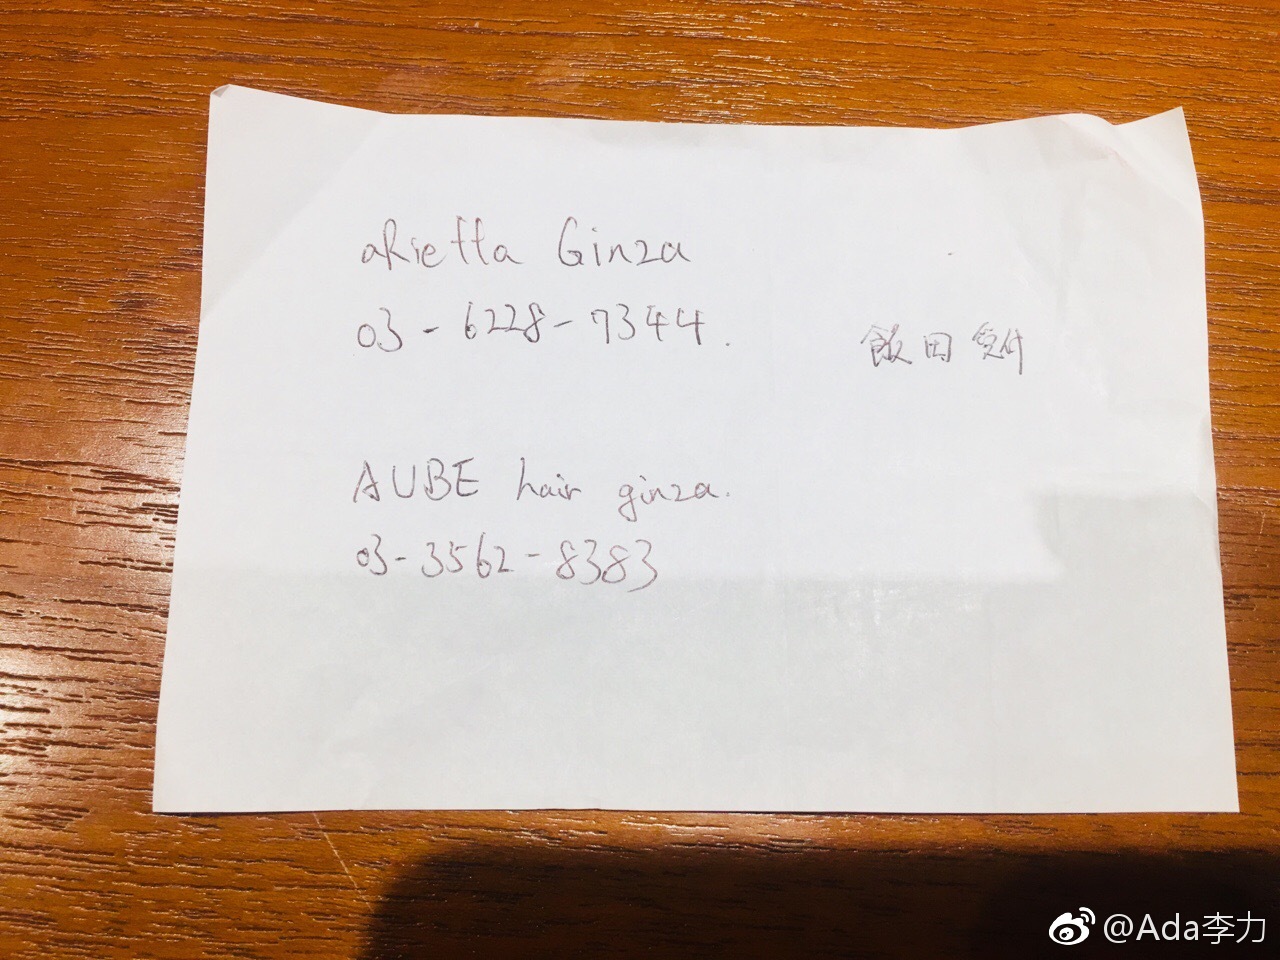 aRietta Ginza
03-6228-7344.
飯田 受付
AUBE hair ginza.
03-3562-8383
@Ada李力